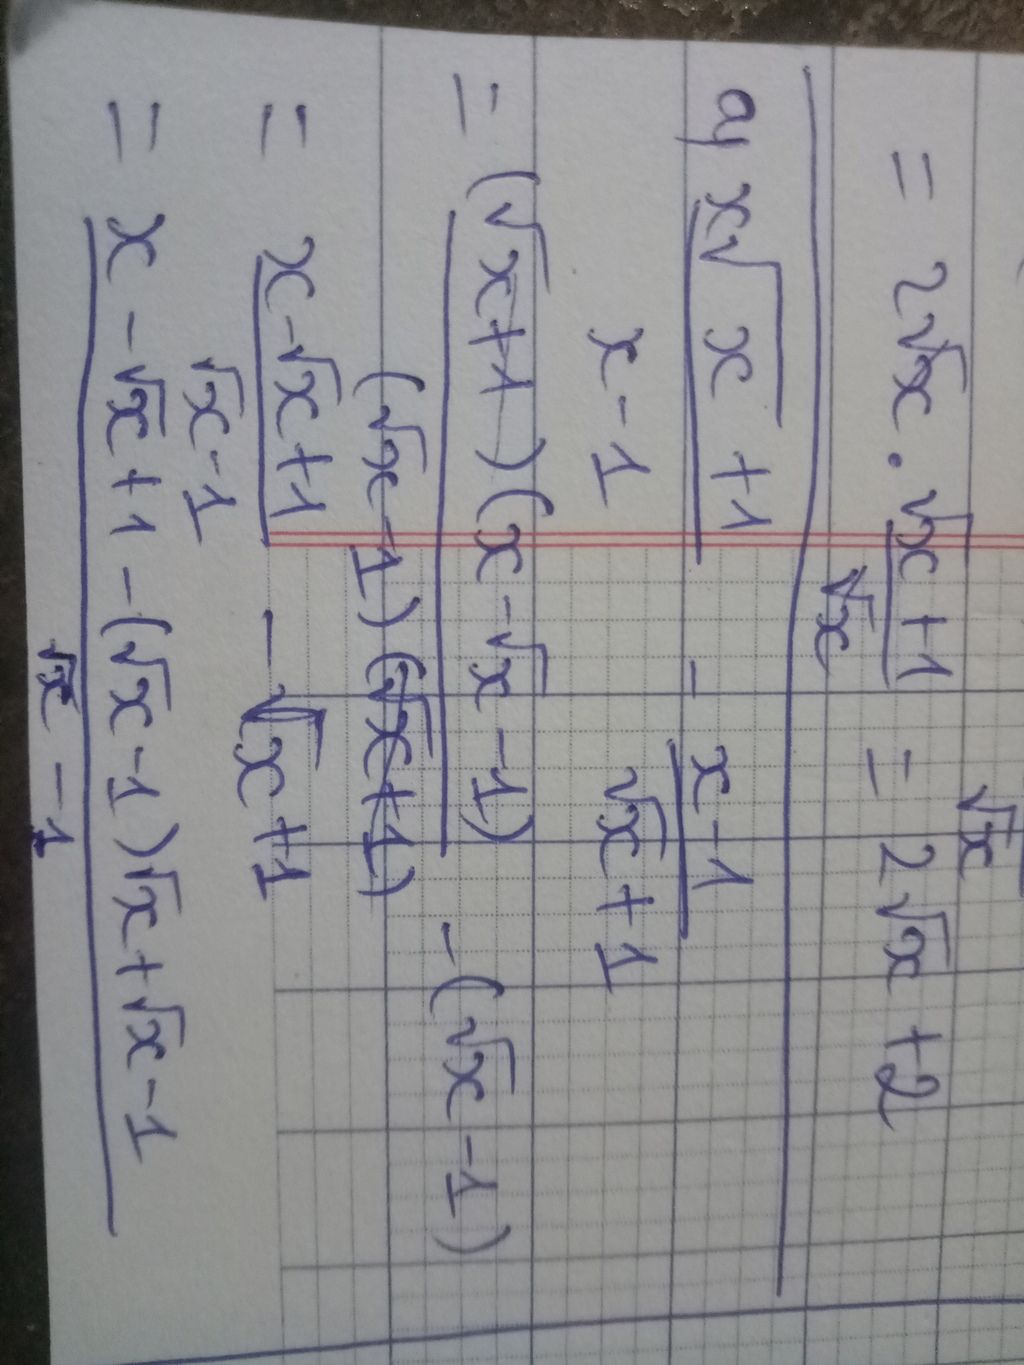 √x
= 2√x . √x+1 / √x = 2√x + 2
a) x√x +1 / x-1 - x-1 / √x+1
= (√x+1)(x-√x-1) / (√x-1)(√x+1) - (√x-1)
= x-√x+1 / √x-1 - √x+1
= x-√x+1-(√x-1)√x+√x-1 / √x-1